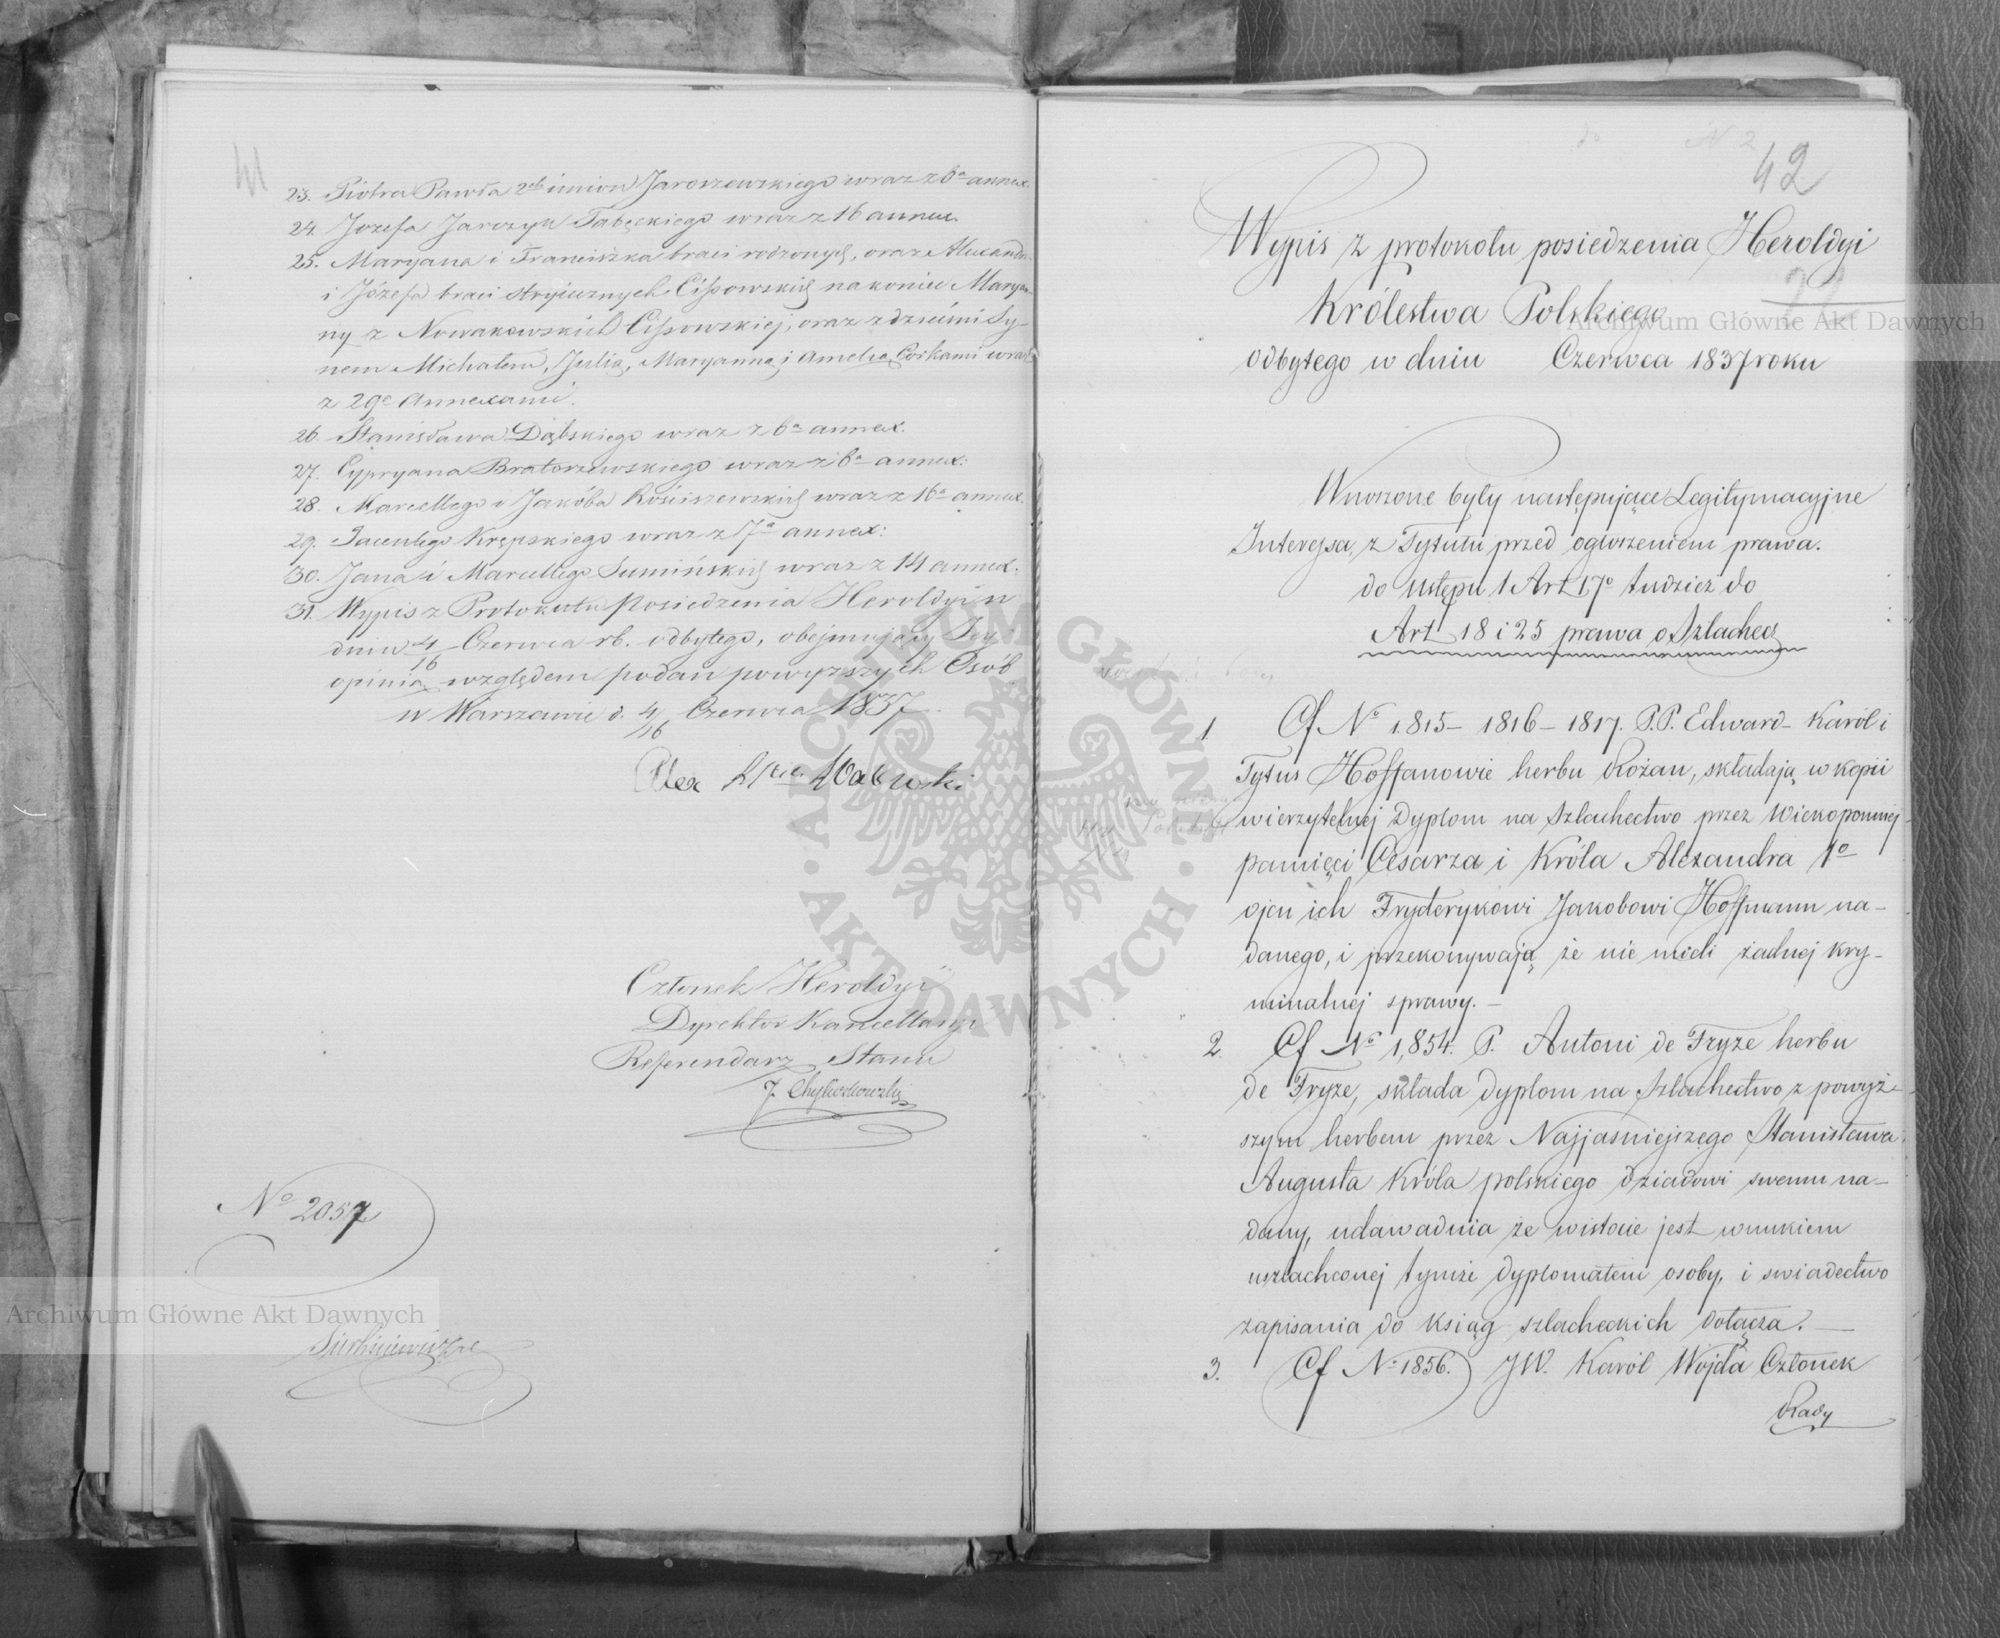 41
23. Piotra Pawła 2ch imion Jaroszewskiego wraz z 6a annex.
24. Jozefa Jarczyk Tabęckiego wraz z 16 annex.
25. Maryana i Franciszka braci rodzonych, oraz Alexandra
i Józefa braci stryiecznych Cissowskich nakoniec Maryan-
ny z Nowakowskich Cissowskiej, oraz z dziećmi Sy-
nem Michałem, Julią, Maryanną i Amelią Corkami wraz
z 29e Annexami.
26. Stanisława Dąbskiego wraz z 6a annex.
27. Cypryana Bratoszewskiego wraz z 6a annex:
28. Marcellego i Jakóba Kościszewskich wraz z 16a annex.
29. Jacentego Krępskiego wraz z 17a annex:
30. Jana i Marcellego Sumińskich wraz z 14 annex:
31. Wypis z Protokułu Posiedzenia Heroldyi w
dniu 4/16 Czerwca rb. odbytego, obejmujący Jey
opinią względem podań powyższych Osób
w Warszawie d. 4/16 Czerwca 1837.
Alex
Członek Heroldyi
Dyrektor Kancellaryi
Referendarz Stanu
No 2057
42
Wypis z protokołu posiedzenia Heroldyi
Królestwa Polskiego
odbytego w dniu Czerwca 1837 roku
Wnoszone były następujące Legitymacyjne
Interessa, z Tytułu przed ogłoszeniem prawa.
do Ustępu 1 Art 17o tudzież do
Art 18 i 25 prawa o Szlachec
1. Cf No 1.815 – 1816 – 1817. P.P. Edward – Karól i
Tytus Hoffanowie herbu Rożan, składają w kopii
wierzytelnej Dyplom na Szlachectwo przez Wiekopomnej
pamięci Cesarza i Króla Alexandra 1o
ojcu ich Fryderykowi Jakobowi Hoffmann na-
danego, i przekonywają, że nie mieli żadnej kry-
minalnej sprawy. –
2. Cf No 1,854. P. Antoni de Fryze herbu
de Fryze, składa dyplom na Szlachectwo z powyż-
szym herbem przez Najjaśniejszego Stanisława
Augusta Króla polskiego dziadowi swemu na-
dany, udawadnia że wistocie jest wnukiem
uszlachconej tymże dyplomatem osoby, i swiadectwo
zapisania do ksiąg szlacheckich dołącza. —
3. Cf No 1856. JW. Karól Wojda Członek
Rady
Archiwum Główne Akt Dawnych
Archiwum Główne Akt Dawnych
ARCHIWUM GŁÓWNE · AKT DAWNYCH ·